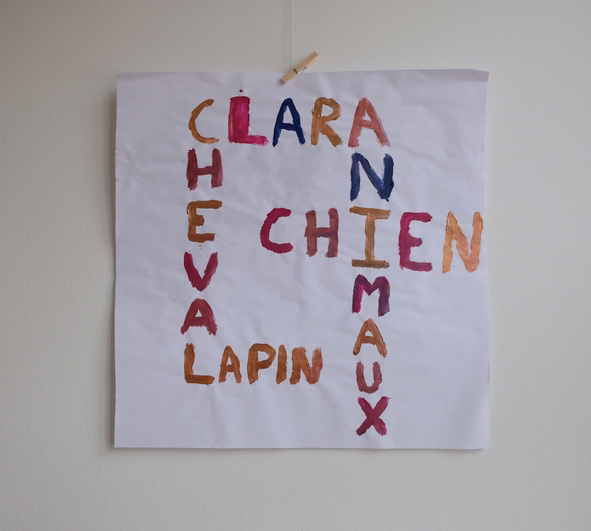 CLARA
CHEVAL
ANIMAUX
CHIEN
LAPIN